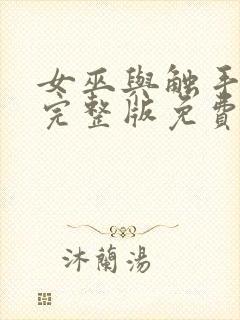 女巫與触手
完整版免費
沐蘭湯